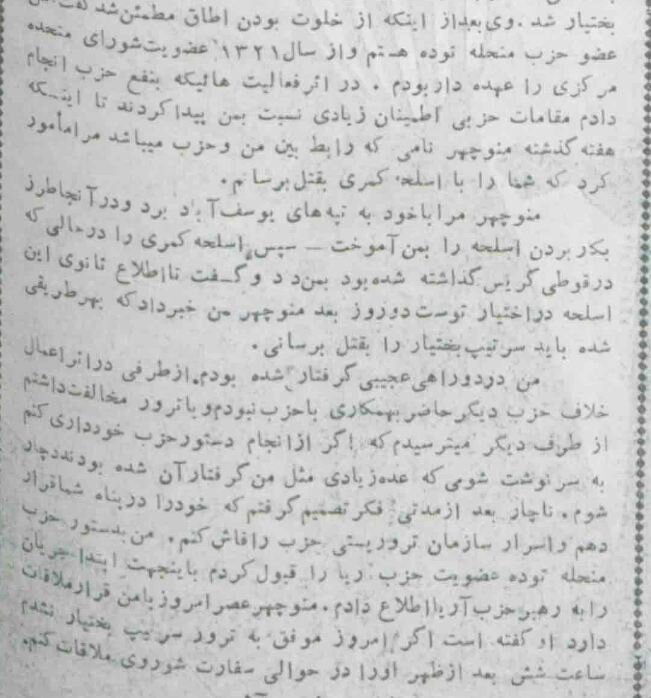 بختیار شد. وی بعداز اینکه از خلوت بودن اطاق مطمئن شد گفت من
عضو حزب منحله توده هستم واز سال ۱۳۲۱ عضویت شورای متحده
مرکزی را عهده دار بودم . در اثر فعالیت هائیکه بنفع حزب انجام
دادم مقامات حزبی اطمینان زیادی نسبت بمن پیدا کردند تا اینکه
هفته گذشته منوچهر نامی که رابط بین من وحزب میباشد مرا مأمور
کرد که شما را با اسلحه کمری بقتل برسانم.
منوچهر مرا باخود به تپه های یوسف آباد برد ودر آنجا طرز
بکار بردن اسلحه را بمن آموخت – سپس اسلحه کمری را درحالی که
درقوطی گریس گذاشته شده بود بمن داد و گفت تا اطلاع ثانوی این
اسلحه در اختیار توست دوروز بعد منوچهر بمن خبر داد که بهر طریقی
شده باید سرتیپ بختیار را بقتل برسانی .
من در دوراهی عجیبی گرفتار شده بودم. از طرفی در اثر اعمال
خلاف حزب دیگر حاضر بهمکاری با حزب نبودم و با ترور مخالفت داشتم
از طرف دیگر میترسیدم که اگر از انجام دستور حزب خودداری کنم
به سرنوشت شومی که عده زیادی مثل من گرفتار آن شده بودند دچار
شوم. ناچار بعد از مدتی فکر تصمیم گرفتم که خود را در پناه شما قرار
دهم و اسرار سازمان تروریستی حزب را فاش کنم. من بدستور حزب
منحله توده عضویت حزب آریا را قبول کردم باینجهت ابتدا جریان
را به رهبر حزب آریا اطلاع دادم. منوچهر عصر امروز با من قرار ملاقات
دارد او گفته است اگر امروز موفق به ترور سرتیپ بختیار نشدم
ساعت شش بعد از ظهر او را در حوالی سفارت شوروی ملاقات کنم.